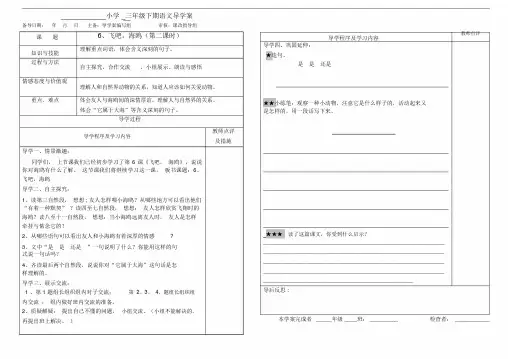 小学 三年级下期语文导学案
备导日期： 年 月 日 主备：导学案编写组 审核：课改指导组
课 题 6、飞吧，海鸥（第二课时）
知识与技能 理解重点词语，体会含义深刻的句子。
过程与方法 自主探究、合作交流 、小组展示、朗读与感悟
情感态度与价值观 理解人和自然界动物的关系，知道人应该如何关爱动物。
重点、难点 体会友人与海鸥间的深情厚谊，理解人与自然界的关系。
体会“它属于大海”等含义深刻的句子。
导学过程
导学程序及学习内容 教师点评
及措施
导学一、情景激趣：
同学们，上节课我们已经初步学习了第 6 课《飞吧，海鸥》，说说
你对海鸥有什么了解。这节课我们将继续学习这一课。板书课题：6、
飞吧，海鸥
导学二、自主探究。
1、读第三自然段，想想：友人怎样喂小海鸥？从哪些地方可以看出他们
“有着一种默契”？读四至七自然段，想想：友人怎样欣赏飞翔时的
海鸥？读八至十一自然段，想想：当小海鸥远离友人时，友人是怎样
牵挂与惦念它的？
2、从哪些语句可以看出友人和小海鸥有着深厚的情感 ？
3、文中“是 是 还是 ”一句说明了什么？你能用这样的句
式说一句话吗？
4、齐读最后两个自然段，说说你对“它属于大海”这句话是怎
样理解的。
导学三、展示交流：
1 、第 1 题组长组织组内对子交流； 第 2、3、 4、题组长组织组
内交流 ；组内做好班内交流的准备。
2、质疑解疑：提出自己不懂的问题，小组交流。（小组不能解决的，
再提出班上解决。 ）
导学程序及学习内容 教师点评
导学四、巩固延伸：
★造句。
是 是 还是
★★小练笔：观察一种小动物，注意它是什么样子的，活动起来又
是怎样的。用一段话写下来。
★★★ 读了这篇课文，你受到什么启示？
导后反思：
本学案完成者 年级 班： 检查者：